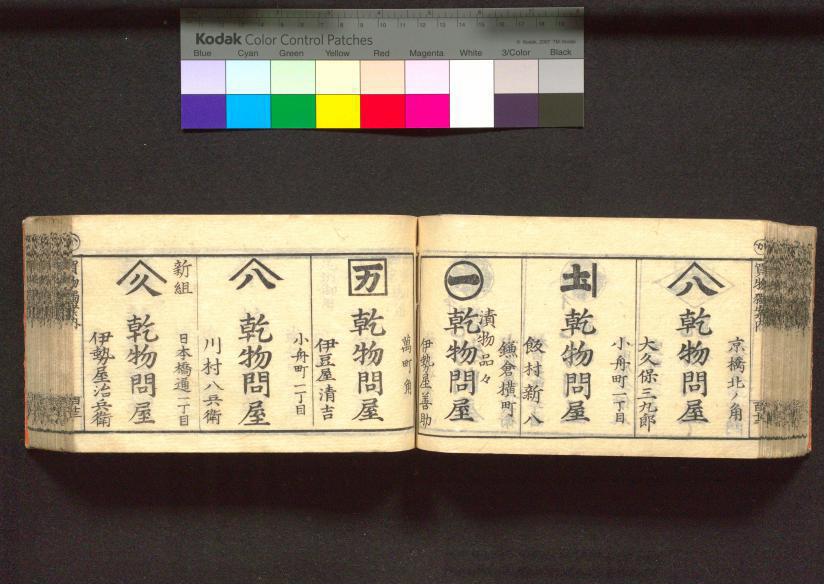 Kodak Color Control Patches
© Kodak, 2007 TM: Kodak
Blue Cyan Green Yellow Red Magenta White 3/Color Black
京橋北ノ角
八
乾物問屋
大久保三九郎
小舟町一丁目
乾物問屋
飯村新八
鎌倉横町
漬物品々
一
乾物問屋
伊勢屋善助
萬町角
万
乾物問屋
伊豆屋清吉
小舟町一丁目
八
乾物問屋
川村八兵衛
新組
日本橋通一丁目
久
乾物問屋
伊勢屋治兵衛